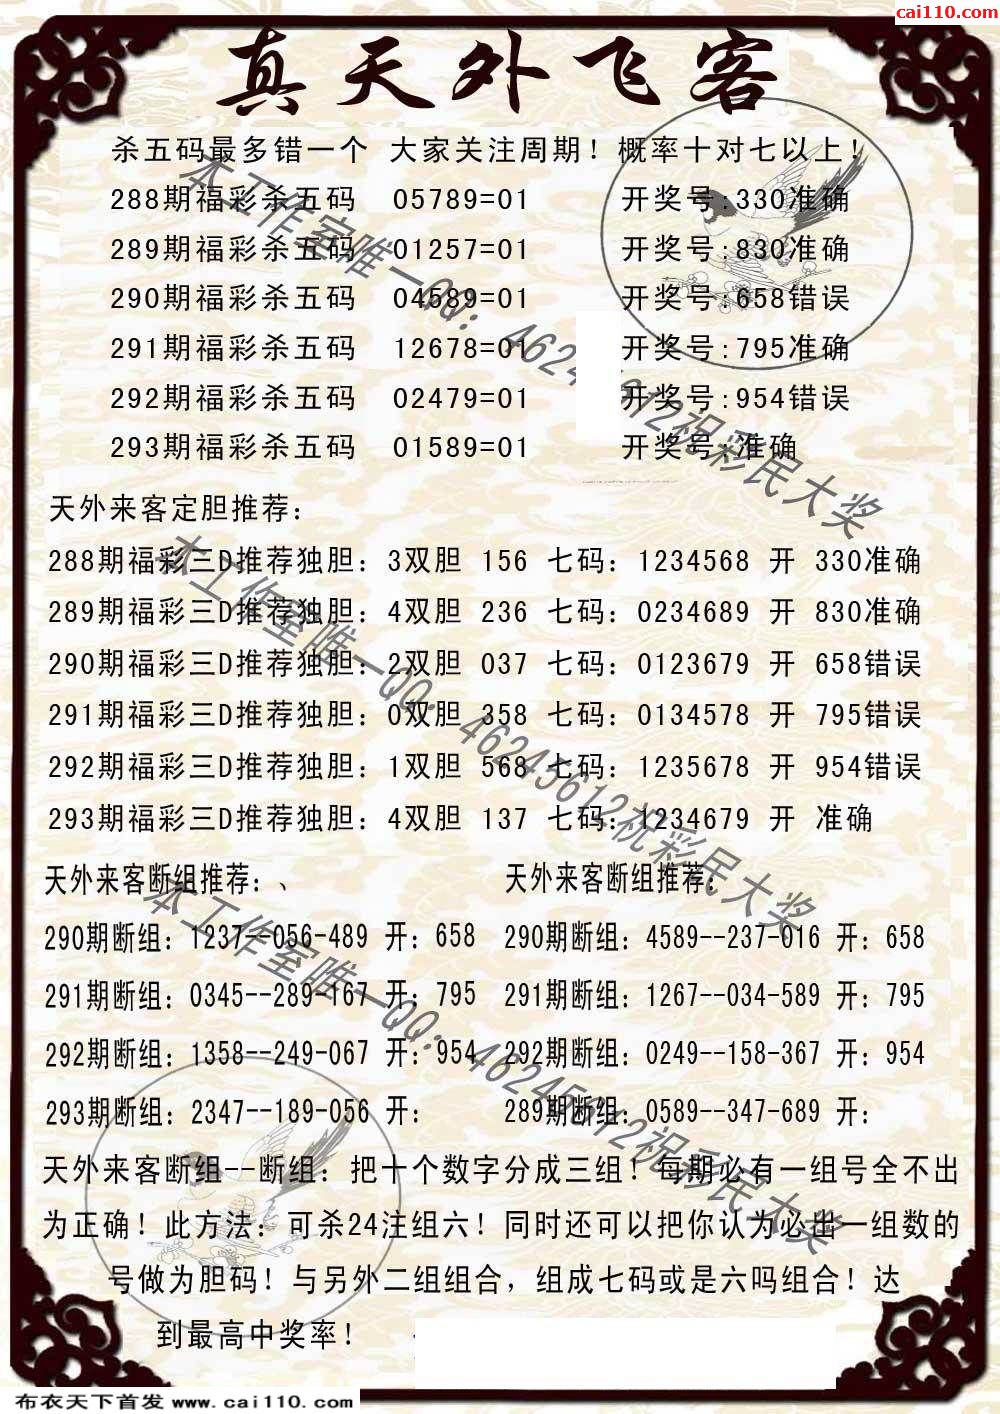 cai110.com
真天外飞客
杀五码最多错一个 大家关注周期！概率十对七以上！
288期福彩杀五码 05789=01 开奖号:330准确
289期福彩杀五码 01257=01 开奖号:830准确
290期福彩杀五码 04589=01 开奖号:658错误
291期福彩杀五码 12678=01 开奖号:795准确
292期福彩杀五码 02479=01 开奖号:954错误
293期福彩杀五码 01589=01 开奖号:准确
本工作室唯一QQ：46245612祝彩民大奖
天外来客定胆推荐：
288期福彩三D推荐独胆：3双胆 156 七码：1234568 开 330准确
289期福彩三D推荐独胆：4双胆 236 七码：0234689 开 830准确
290期福彩三D推荐独胆：2双胆 037 七码：0123679 开 658错误
291期福彩三D推荐独胆：0双胆 358 七码：0134578 开 795错误
292期福彩三D推荐独胆：1双胆 568 七码：1235678 开 954错误
293期福彩三D推荐独胆：4双胆 137 七码：1234679 开 准确
本工作室唯一QQ：46245612祝彩民大奖
天外来客断组推荐：、 天外来客断组推荐：
290期断组：1237--056-489 开：658 290期断组：4589--237-016 开：658
291期断组：0345--289-167 开：795 291期断组：1267--034-589 开：795
292期断组：1358--249-067 开：954 292期断组：0249--158-367 开：954
293期断组：2347--189-056 开： 289期断组：0589--347-689 开：
本工作室唯一QQ：46245612祝彩民大奖
天外来客断组--断组：把十个数字分成三组！每期必有一组号全不出
为正确！此方法：可杀24注组六！同时还可以把你认为必出一组数的
号做为胆码！与另外二组组合，组成七码或是六吗组合！达
到最高中奖率！
布衣天下首发 www.cai110.com